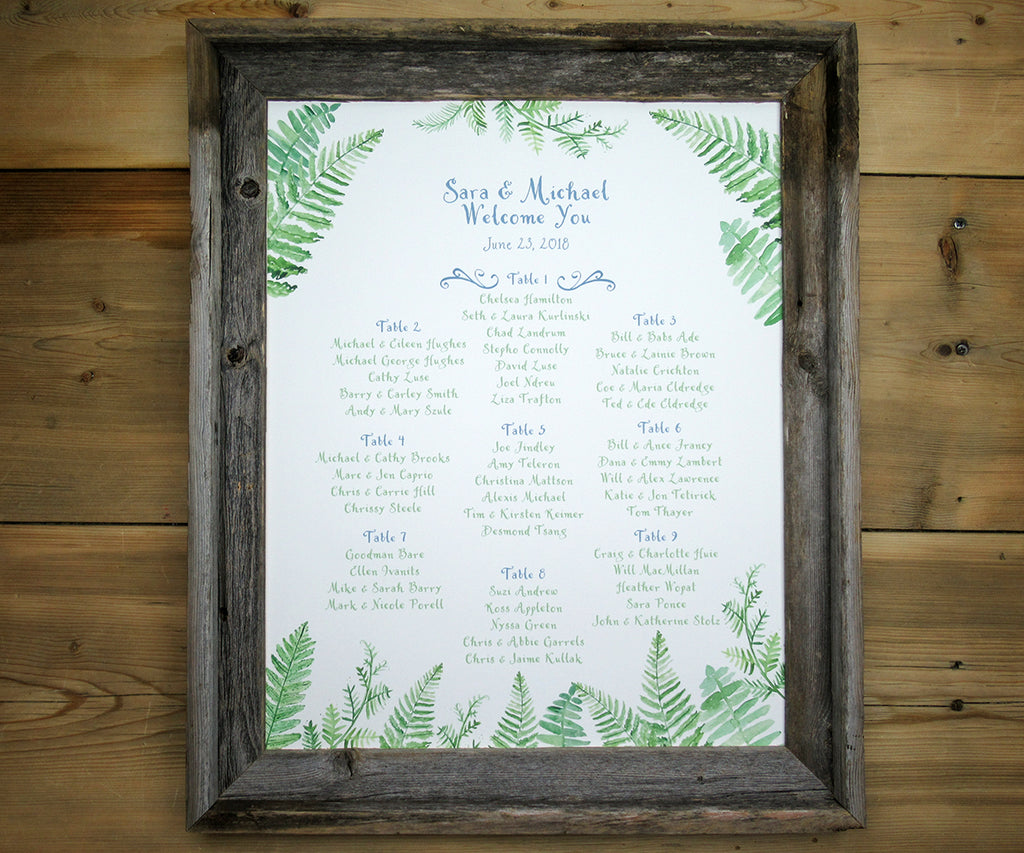 Sara & Michael
Welcome You
June 23, 2018
Table 1
Chelsea Hamilton
Seth & Laura Kurlinski
Chad Landrum
Stepho Connolly
David Luse
Joel Ndreu
Liza Trafton
Table 2
Michael & Eileen Hughes
Michael George Hughes
Cathy Luse
Barry & Carley Smith
Andy & Mary Szule
Table 3
Bill & Babs Ade
Bruce & Lainie Brown
Natalie Crichton
Coe & Maria Eldredge
Ted & Ede Eldredge
Table 4
Michael & Cathy Brooks
Marc & Jen Caprio
Chris & Carrie Hill
Chrissy Steele
Table 5
Joe Findley
Amy Teleron
Christina Mattson
Alexis Michael
Tim & Kirsten Reimer
Desmond Tsang
Table 6
Bill & Anee Francy
Dana & Emmy Lambert
Will & Alex Lawrence
Katie & Jon Tetirick
Tom Thayer
Table 7
Goodman Bare
Ellen Ivanits
Mike & Sarah Barry
Mark & Nicole Porell
Table 8
Suzi Andrew
Ross Appleton
Nyssa Green
Chris & Abbie Garrels
Chris & Jaime Kullak
Table 9
Craig & Charlotte Huie
Will MacMillan
Heather Wopat
Sara Ponce
John & Katherine Stolz